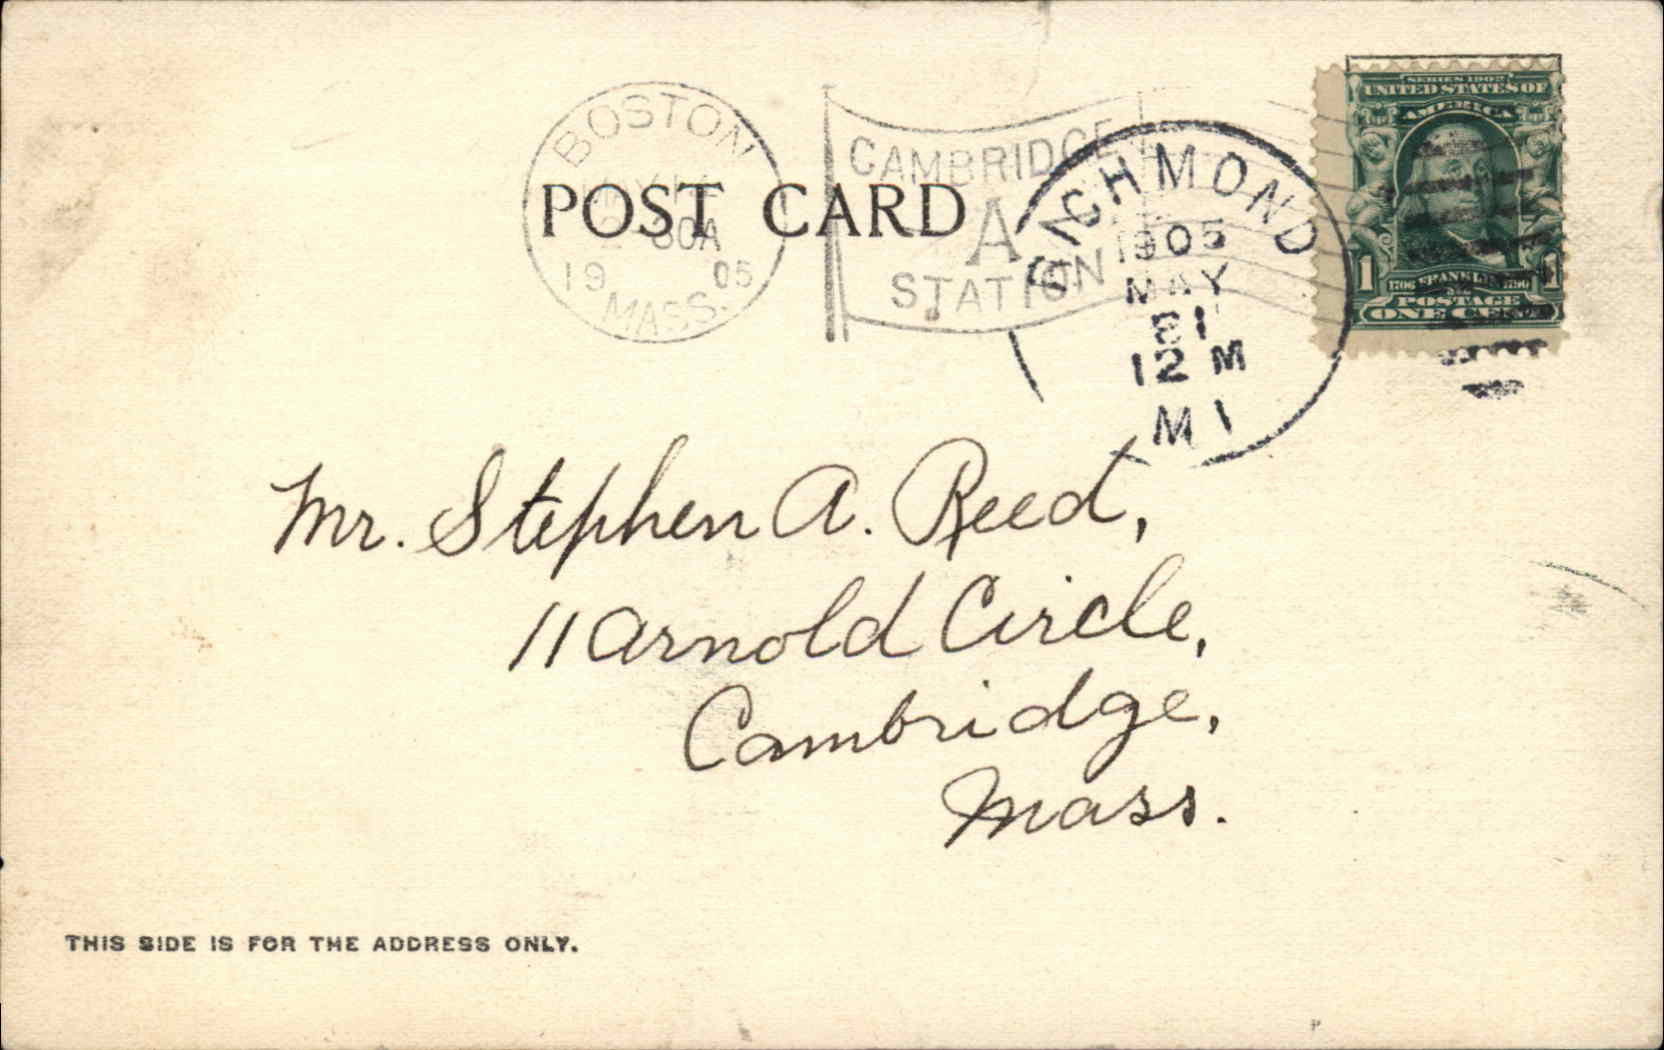 SERIES 1902
UNITED STATES OF
AMERICA
1 1706 FRANKLIN 1790 1
POSTAGE
ONE CENT
BOSTON
30A
19 05
MASS.
CAMBRIDGE
A
STATION
RICHMOND
1905
MAY
12 M
POST CARD
Mr. Stephen A. Reed,
11 Arnold Circle,
Cambridge,
Mass.
THIS SIDE IS FOR THE ADDRESS ONLY.